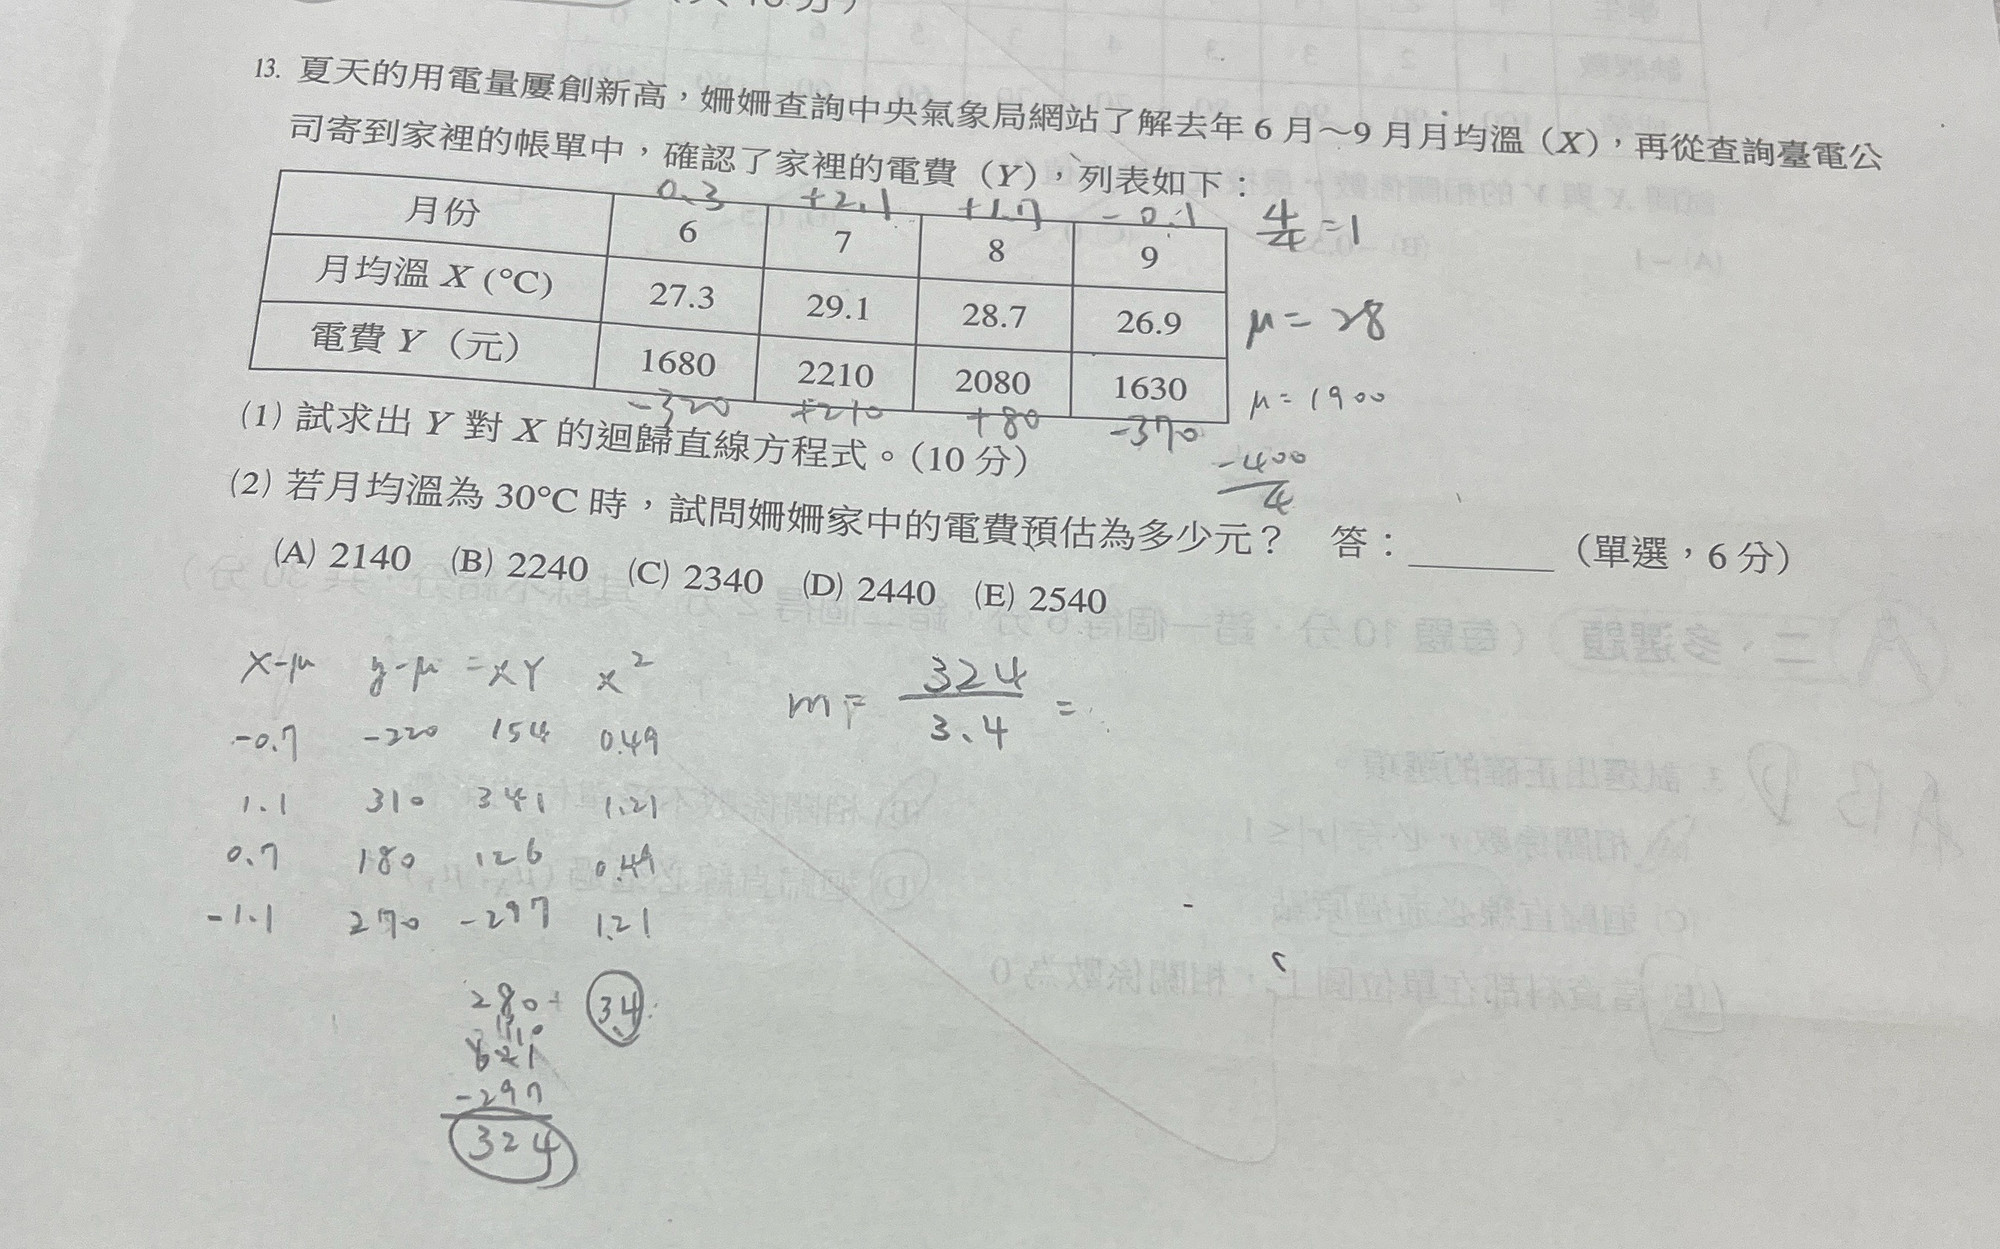 13. 夏天的用電量屢創新高，姍姍查詢中央氣象局網站了解去年 6 月～9 月月均溫（X），再從查詢臺電公
司寄到家裡的帳單中，確認了家裡的電費（Y），列表如下：
0.3 +2.1 +1.7 -0.1
月份 6 7 8 9
4/4 = 1
月均溫 X (°C) 27.3 29.1 28.7 26.9
μ = 28
電費 Y（元） 1680 2210 2080 1630
μ = 1900
-320 +210 +80 -370
-400/4
(1) 試求出 Y 對 X 的迴歸直線方程式。(10 分)
(2) 若月均溫為 30°C 時，試問姍姍家中的電費預估為多少元？ 答：________（單選，6 分）
(A) 2140 (B) 2240 (C) 2340 (D) 2440 (E) 2540
x-μ y-μ = xY x²
-0.7 -220 154 0.49
1.1 310 341 1.21
0.7 180 126 0.49
-1.1 270 -297 1.21
m = 324/3.4 =
280+ 34
621
-297
324